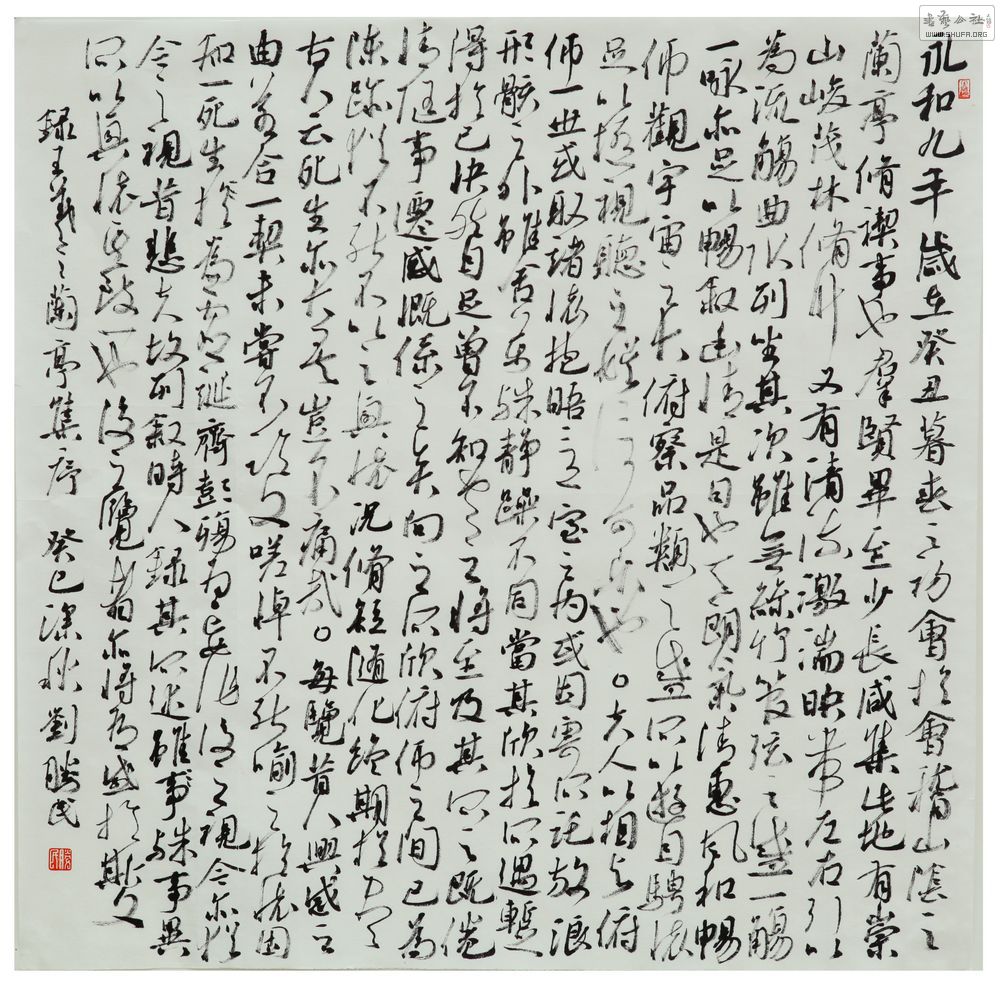 永和九年歲在癸丑暮春之初會於會稽山陰之
蘭亭脩禊事也羣賢畢至少長咸集此地有崇
山峻茂林脩竹又有清流激湍映帶左右引以
為流觴曲水列坐其次雖無絲竹管弦之盛一觴
一詠亦足以暢敘幽情是日也天朗氣清惠風和暢
仰觀宇宙之大俯察品類之盛所以遊目騁懷
足以極視聽之娛信可樂也。夫人之相与俯
仰一世或取諸懷抱晤言一室之内或因寄所託放浪
形骸之外雖舍萬殊靜躁不同當其欣於所遇暫
得於己快然自足曾不知老之將至及其所之既倦
情隨事遷感慨係之矣向之所欣俯仰之間已為
陳跡猶不能不以之興懷況脩短隨化終期於盡
古人云死生亦大矣豈不痛哉。每覽昔人興感之
由若合一契未嘗不臨文嗟悼不能喻之於懷固
知一死生於為虛誕齊彭殤為妄作後之視今亦猶
今之視昔悲夫故列敘時人錄其所述雖事殊事異
所以興懷其致一也後之覽者亦將有感於斯文
錄王羲之蘭亭集序 癸巳深秋劉勝民
書藝公社
WWW.SHUFA.ORG